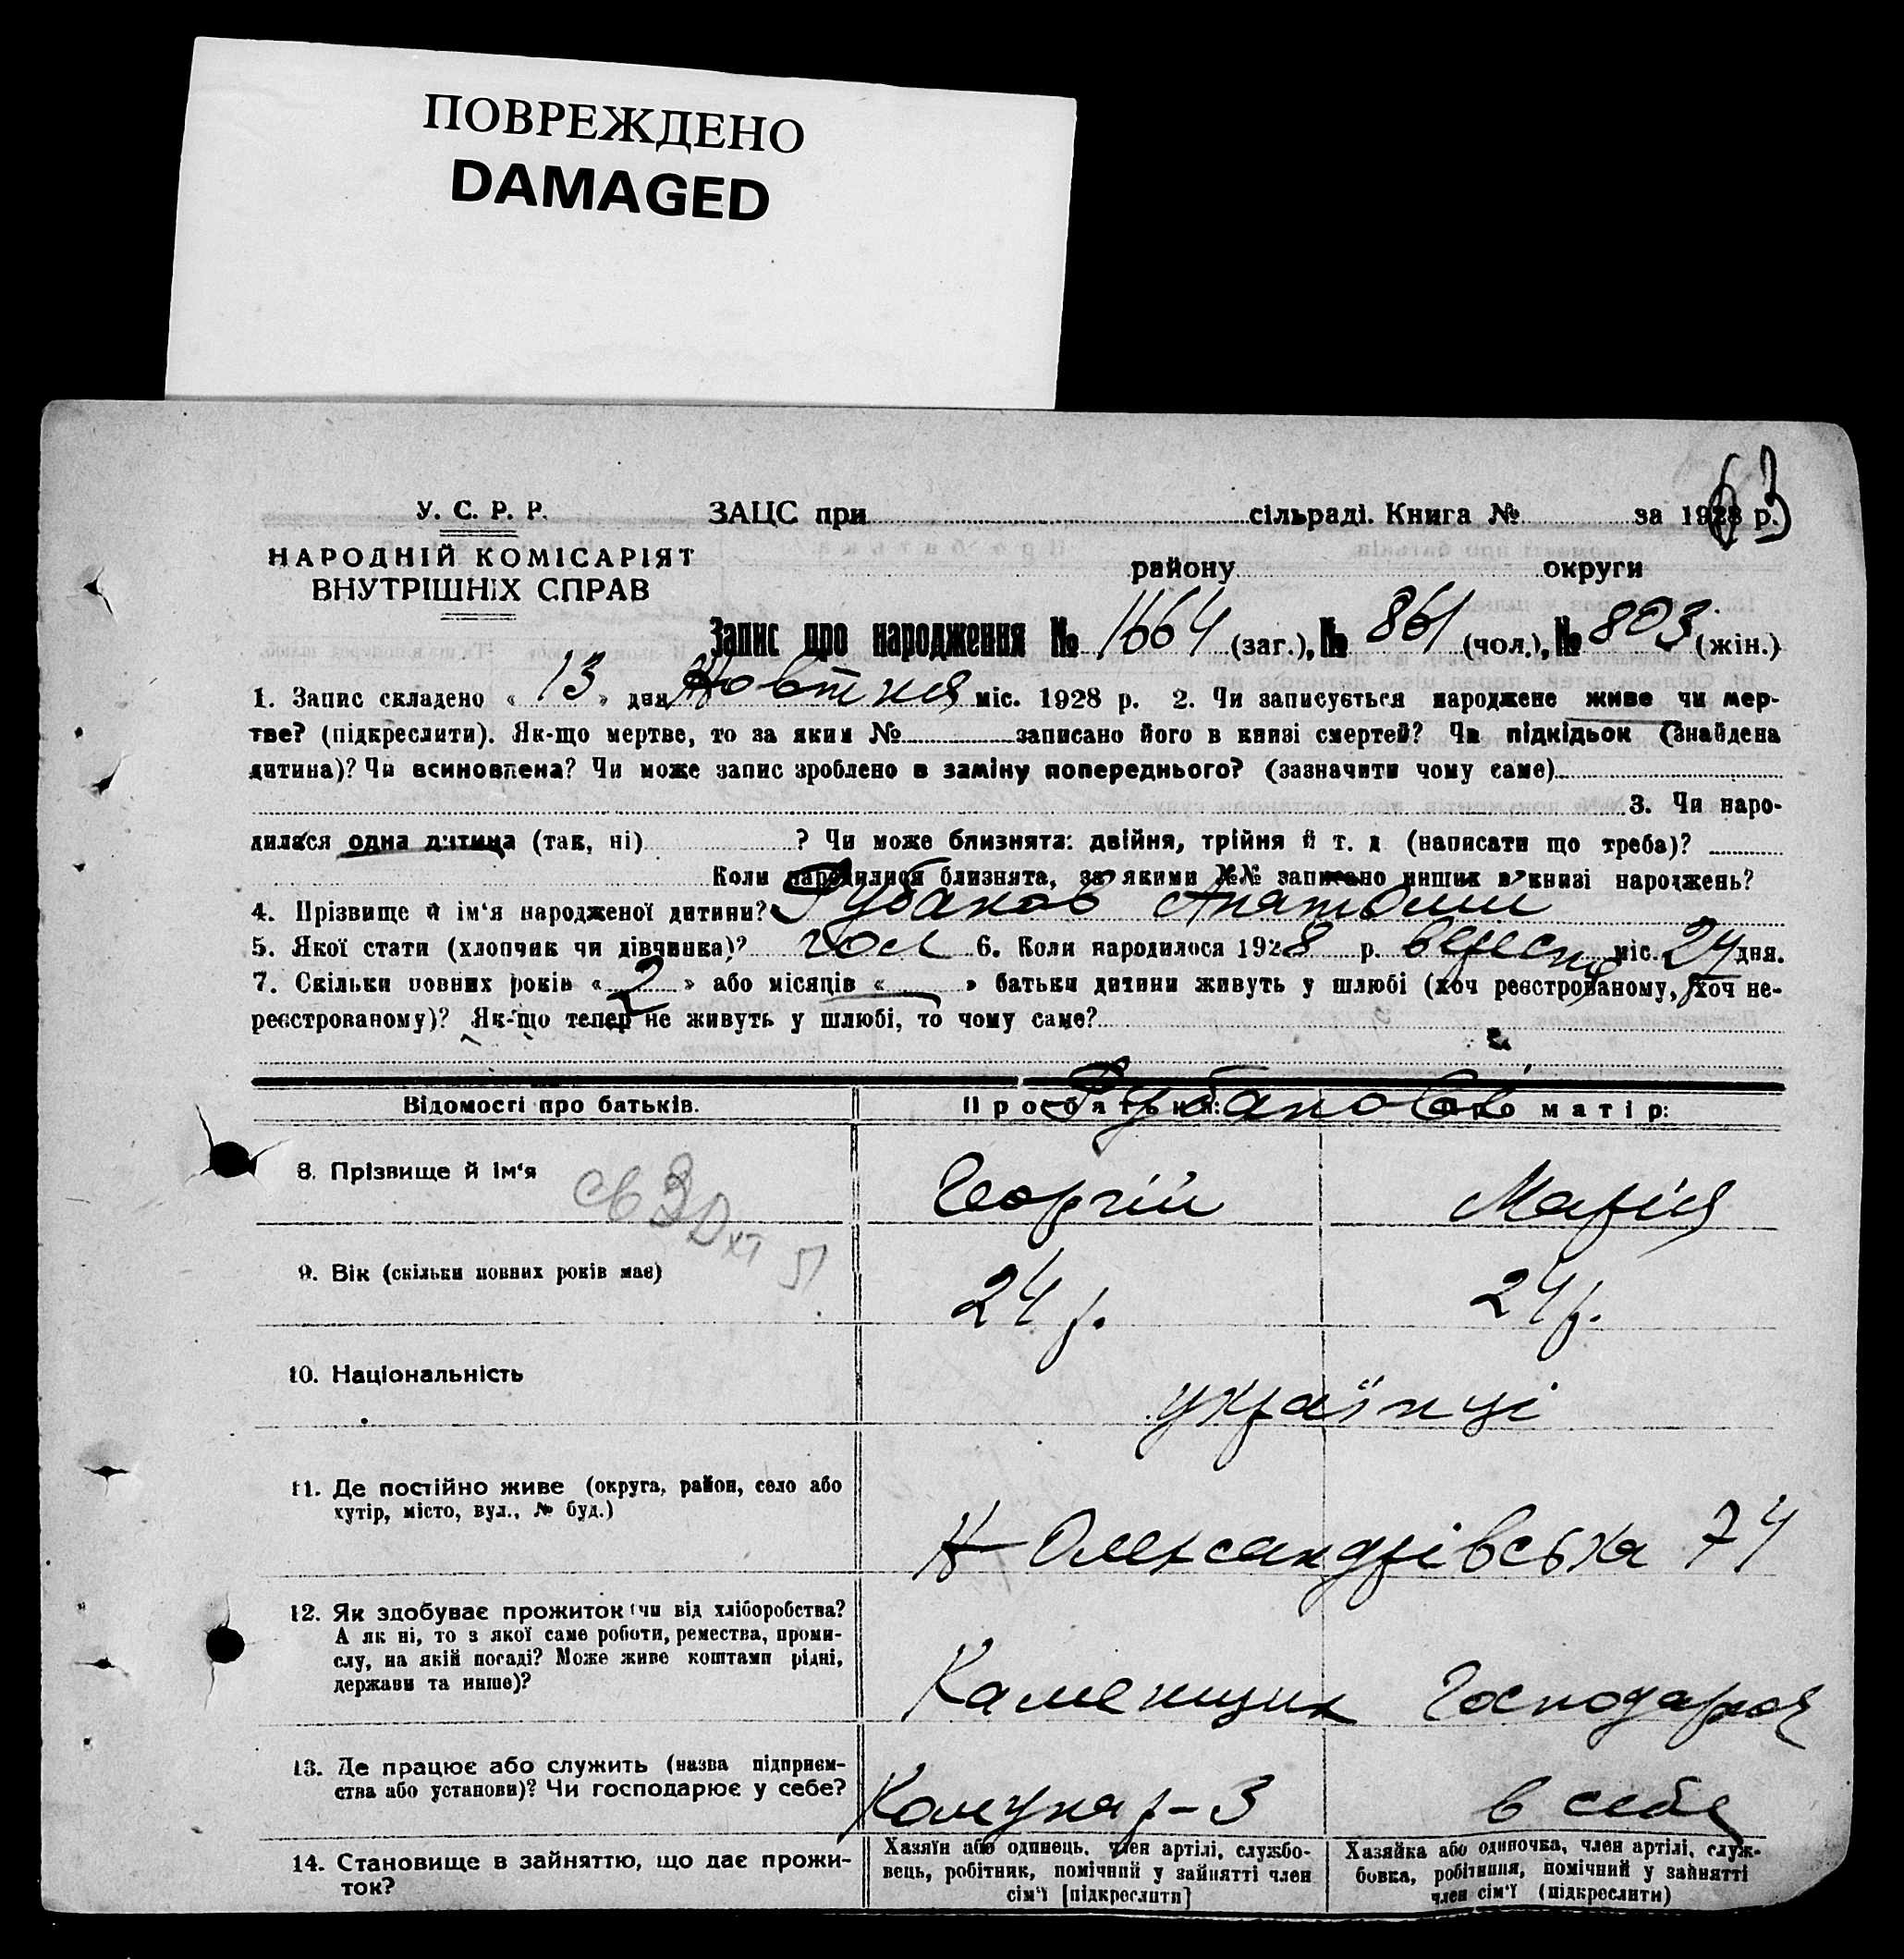 ПОВРЕЖДЕНО
DAMAGED
63
У. С. Р. Р. ЗАЦС при сільраді. Книга № за 1928 р.
НАРОДНІЙ КОМІСАРІЯТ
ВНУТРІШНІХ СПРАВ
району округи
Запис про народження № 1664 (заг.), № 861 (чол.), № 803 (жін.)
1. Запис складено « 13 » дня Жовтня міс. 1928 р. 2. Чи записується народжене живе чи мер-
тве? (підкреслити). Як-що мертве, то за яким № записано його в книзі смертей? Чи підкідьок (Знайдена
дитина)? Чи всиновлена? Чи може запис зроблено в заміну попереднього? (зазначити чому саме)
3. Чи наро-
дилася одна дитина (так, ні) ? Чи може близнята: двійня, трійня й т. д (написати що треба)?
Коли народилися близнята, за якими №№ записано инших в книзі народжень?
4. Прізвище й ім'я народженої дитини? Рубанов Анатолий
5. Якої стати (хлопчик чи дівчинка)? чол 6. Коли народилося 1928 р. вересня міс. 24 дня.
7. Скільки повних років « 2 » або місяців « » батьки дитини живуть у шлюбі (хоч реєстрованому, хоч не-
реєстрованому)? Як-що тепер не живуть у шлюбі, то чому саме?
Відомості про батьків. Про батька: Про матір:
Рубанови
8. Прізвище й ім'я Георгій Марія
св 30 XI 51
9. Вік (скільки повних років має) 24 р. 24 р.
10. Національність українці
11. Де постійно живе (округа, район, село або
хутір, місто, вул., № буд.)
Н-Олександрівська 74
12. Як здобуває прожиток (чи від хліборобства?
А як ні, то з якої саме роботи, ремества, проми-
слу, на якій посаді? Може живе коштами рідні,
держави та инше)?
Каменщик Господарка
13. Де працює або служить (назва підприєм-
ства або установи)? Чи господарює у себе?
Комунар-3 в себе
14. Становище в зайняттю, що дає прожи-
ток?
Хазяїн або одинець, член артілі, службо-
вець, робітник, помічний у зайнятті член
сім'ї [підкреслити]
Хазяйка або одиночка, член артілі, служ-
бовка, робітниця, помічний у зайнятті
член сім'ї (підкреслити)